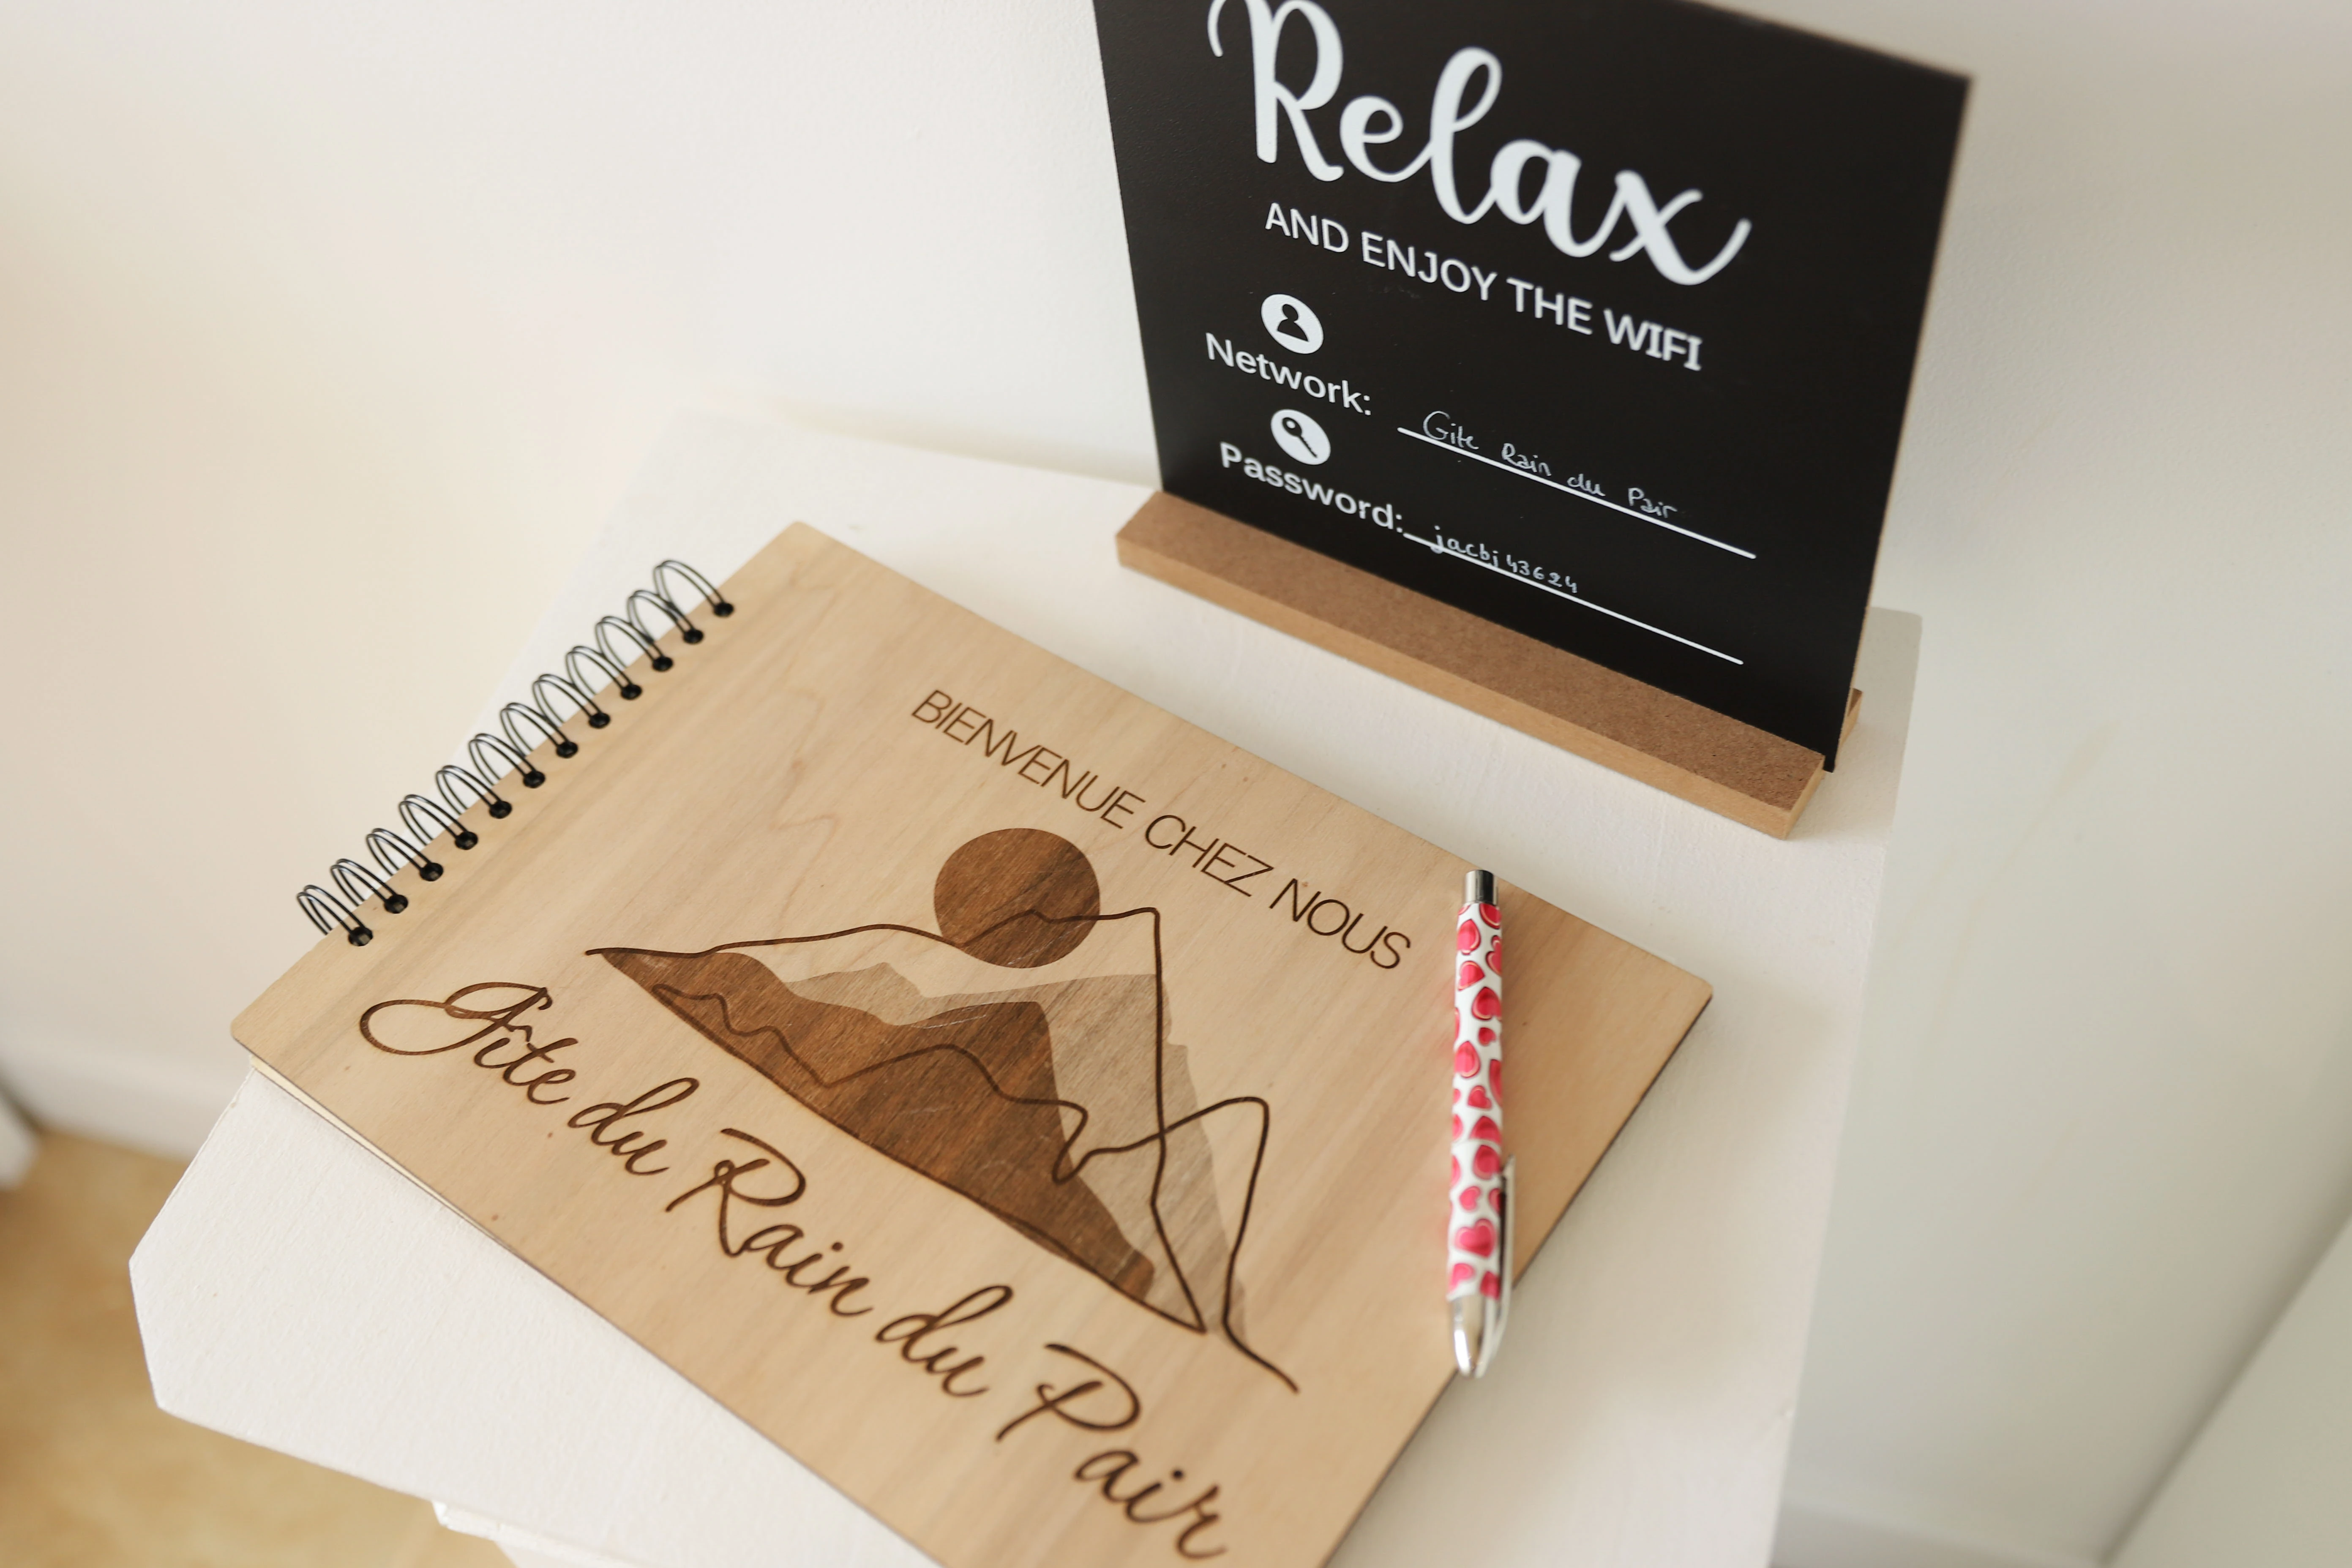 Relax
AND ENJOY THE WIFI
Network: Gite Rain du Pair
Password: jacbj43624
BIENVENUE CHEZ NOUS
Gîte du Rain du Pair